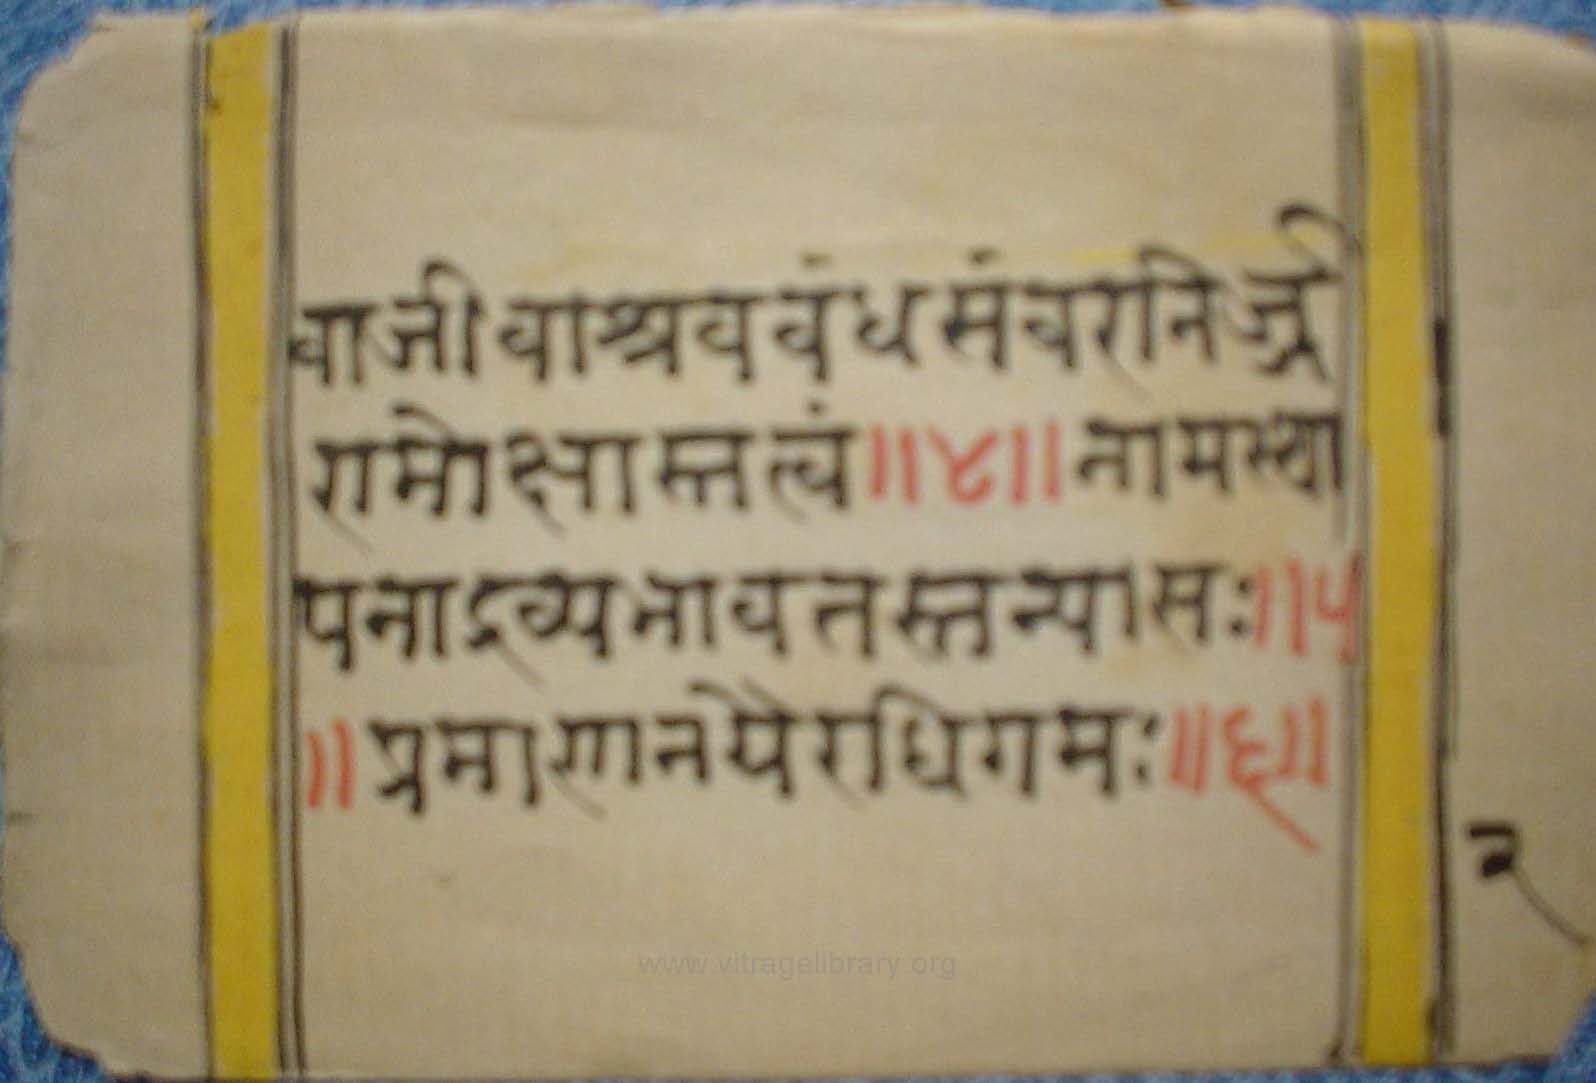 वाजीवाश्रवबंधसंवरनिर्ज्ज
रामोक्षास्तत्वं॥४॥नामस्था
पनाद्रव्यभावतस्तन्यासः॥५
॥प्रमाणनयैरधिगमः॥६॥
२
www.vitragelibrary.org